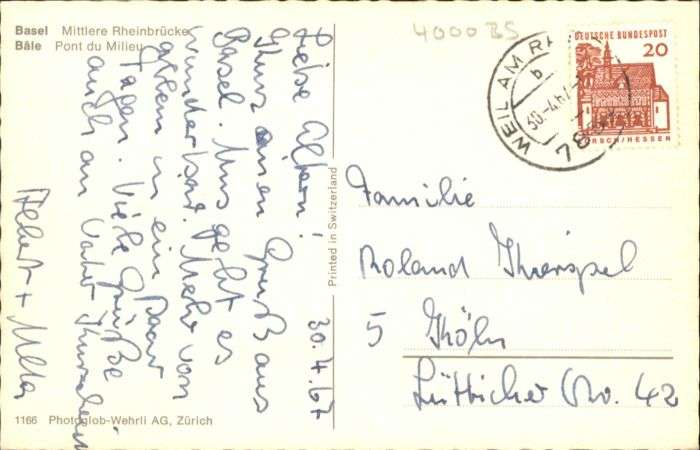 Basel Mittlere Rheinbrücke
Bâle Pont du Milieu
4000 BS
WEIL AM
b
30.-4.67
78
DEUTSCHE BUNDESPOST
20
LORSCH/HESSEN
30.4.67
Liebe Eltern!
einen Gruß aus
Basel. Uns geht es
wunderbar. Mehr von
allem in ein paar
Tagen. Viele Grüße
auch an Vater
+
Printed in Switzerland
Familie
Roland
5 Köln
Lütticher 42
1166 Photoglob-Wehrli AG, Zürich